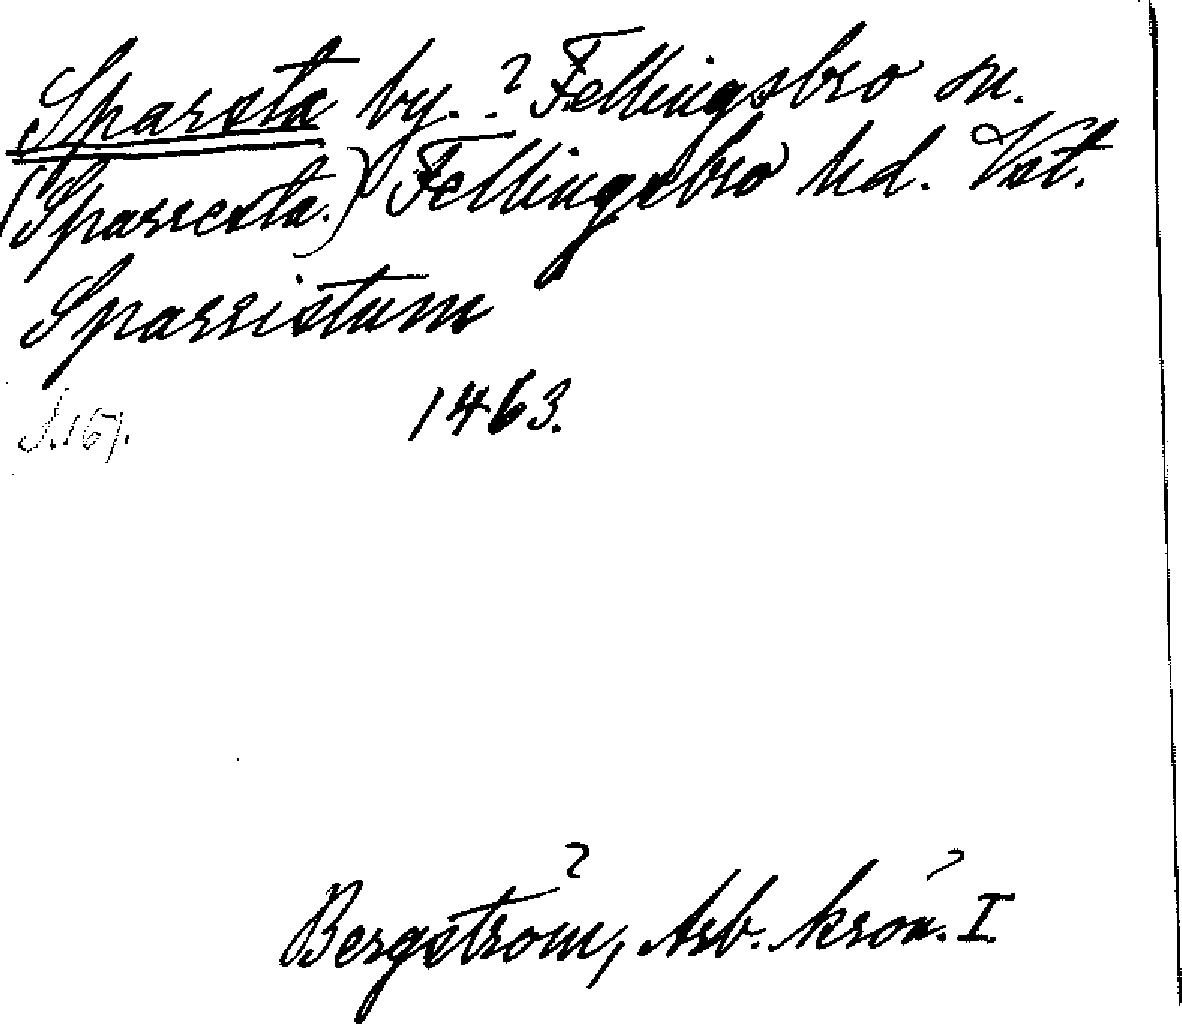 Sparsta by. ? Fellingsbro sn.
(Sparresta.) Fellingsbro hd. Vst.
Sparristum
1463.
S. 167.
?
Bergström, Arb. krön. I.